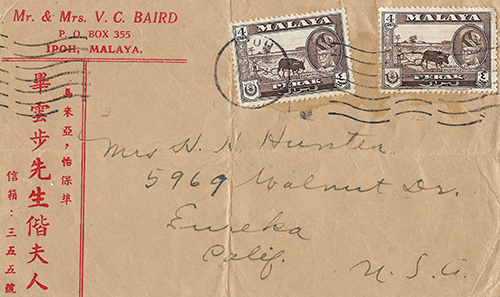 Mr. & Mrs. V. C. BAIRD
P. O. BOX 355
IPOH, MALAYA.
馬來亞，怡保埠
畢雲步先生偕夫人
信箱：三五五號
4 MALAYA
PERAK
4 MALAYA
PERAK
Mrs H. H. Hunter
5969 Walnut Dr.
Eureka
Calif.
U. S. A.